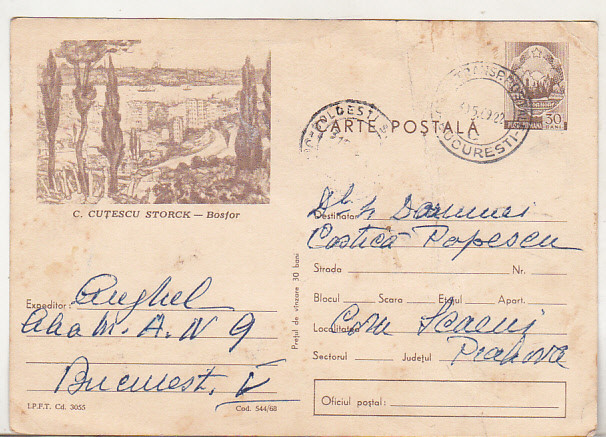 C. CUȚESCU STORCK — Bosfor
CARTE POȘTALĂ
POSTA ROMANA 30 BANI
BUCUREȘTI
Destinatar
Domnei
Costică Popescu
Strada Nr.
Blocul Scara Etajul Apart.
Localitatea Com
Sectorul Județul Prahova
Oficiul poștal:
Prețul de vînzare 30 bani
Expeditor: Anghel
A. IV 9
București, V
I.P.F.T. Cd. 3055
Cod. 544/68